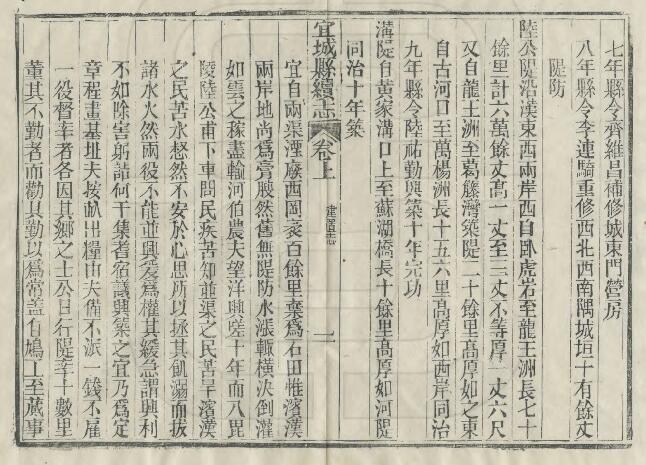 七年縣令齊維昌補修城東門營房
八年縣令李連騎重修西北西南隅城垣十有餘丈
隄防
陸公隄沿漢東西兩岸西自臥虎岩至龍王洲長七十
餘里計六萬餘丈高一丈至三丈不等厚一丈六尺
又自龍王洲至葛藤灣築隄二十餘里高厚如之東
自古河口至萬楊洲長十五六里高厚如西岸同治
九年縣令陸祐勤興築十年完功
溝隄自黃家溝口上至蘇湖橋長十餘里高厚如河隄
同治十年築
宜城縣續志 卷上 建置志 一
宜自兩渠湮廢西岡袤百餘里棄爲石田惟濱漢
兩岸地尚爲膏腴然舊無隄防水漲輒橫決倒灌
如雲之稼盡輸河伯農夫望洋興嗟十年而八毘
陵陸公甫下車問民疾苦知並渠之民苦旱濱漢
之民苦水愁然不安於心思所以拯其飢溺而拔
諸水火然兩役不能並興爰爲權其緩急謂興利
不如除害躬詣河干集耆宿議興築之宜乃爲定
章程畫基址夫按畝出糧由夫備不派一錢不雇
一役督率者各因其鄉之士公日行隄率十數里
董其不勤者而勸其勤以爲常蓋自鳩工至蕆事